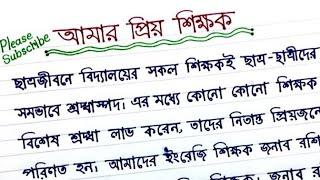 Please
Subscribe
আমার প্রিয় শিক্ষক
ছাত্রজীবনে বিদ্যালয়ের সকল শিক্ষকই ছাত্র-ছাত্রীদের
সমভাবে শ্রদ্ধাস্পদ। এর মধ্যে কোনো কোনো শিক্ষক
বিশেষ শ্রদ্ধা লাভ করেন, তাদের নিতান্ত প্রিয়জনে
পরিণত হন। আমাদের ইংরেজি শিক্ষক জনাব রশি